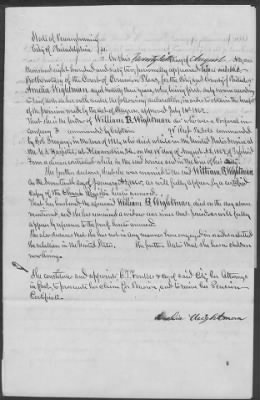 State of Pennsylvania
City of Philadelphia } ss.
On this twentieth day of August A.D. one
thousand eight hundred and sixty two, personally appeared before me the
Prothonotary of the Court of Common Pleas, for the City and County of Philada
Amelia Wightman aged twenty three years, who being first duly sworn according
to law, doth on her oath make the following declaration, in order to obtain the benefit
of the provision made by the act of Congress approved July 14th 1862.
That she is the widow of William B. Wightman decd who was a Corporal in
company commanded by Captain Regt commanded
by Col. Gregory, in the war of 1861, who died while in the United States Service at
the U.S. Hospital, at Alexandria Va. on the day of August A.D. 1862 of Typhoid
from a disease contracted while in the said service and in the line of his duty.
She further declares, that she was married to the said William B. Wightman
on the day of January A.D. as will fully appear by a certified
Copy of the Church Register hereto annexed.
That her husband the aforesaid William B. Wightman, died on the day above
mentioned, and she has remained a widow ever since that period as will fully
appear by reference to the proof hereto annexed.
She also declares that she has not in any manner been engaged in, or aided or abetted
the rebellion in the United States. She further states that she has no children
now living.
She constitutes and appoints her Attorney
in fact, to prosecute her claim for Pension and to receive her Pension
Certificate.
Amelia Wightman